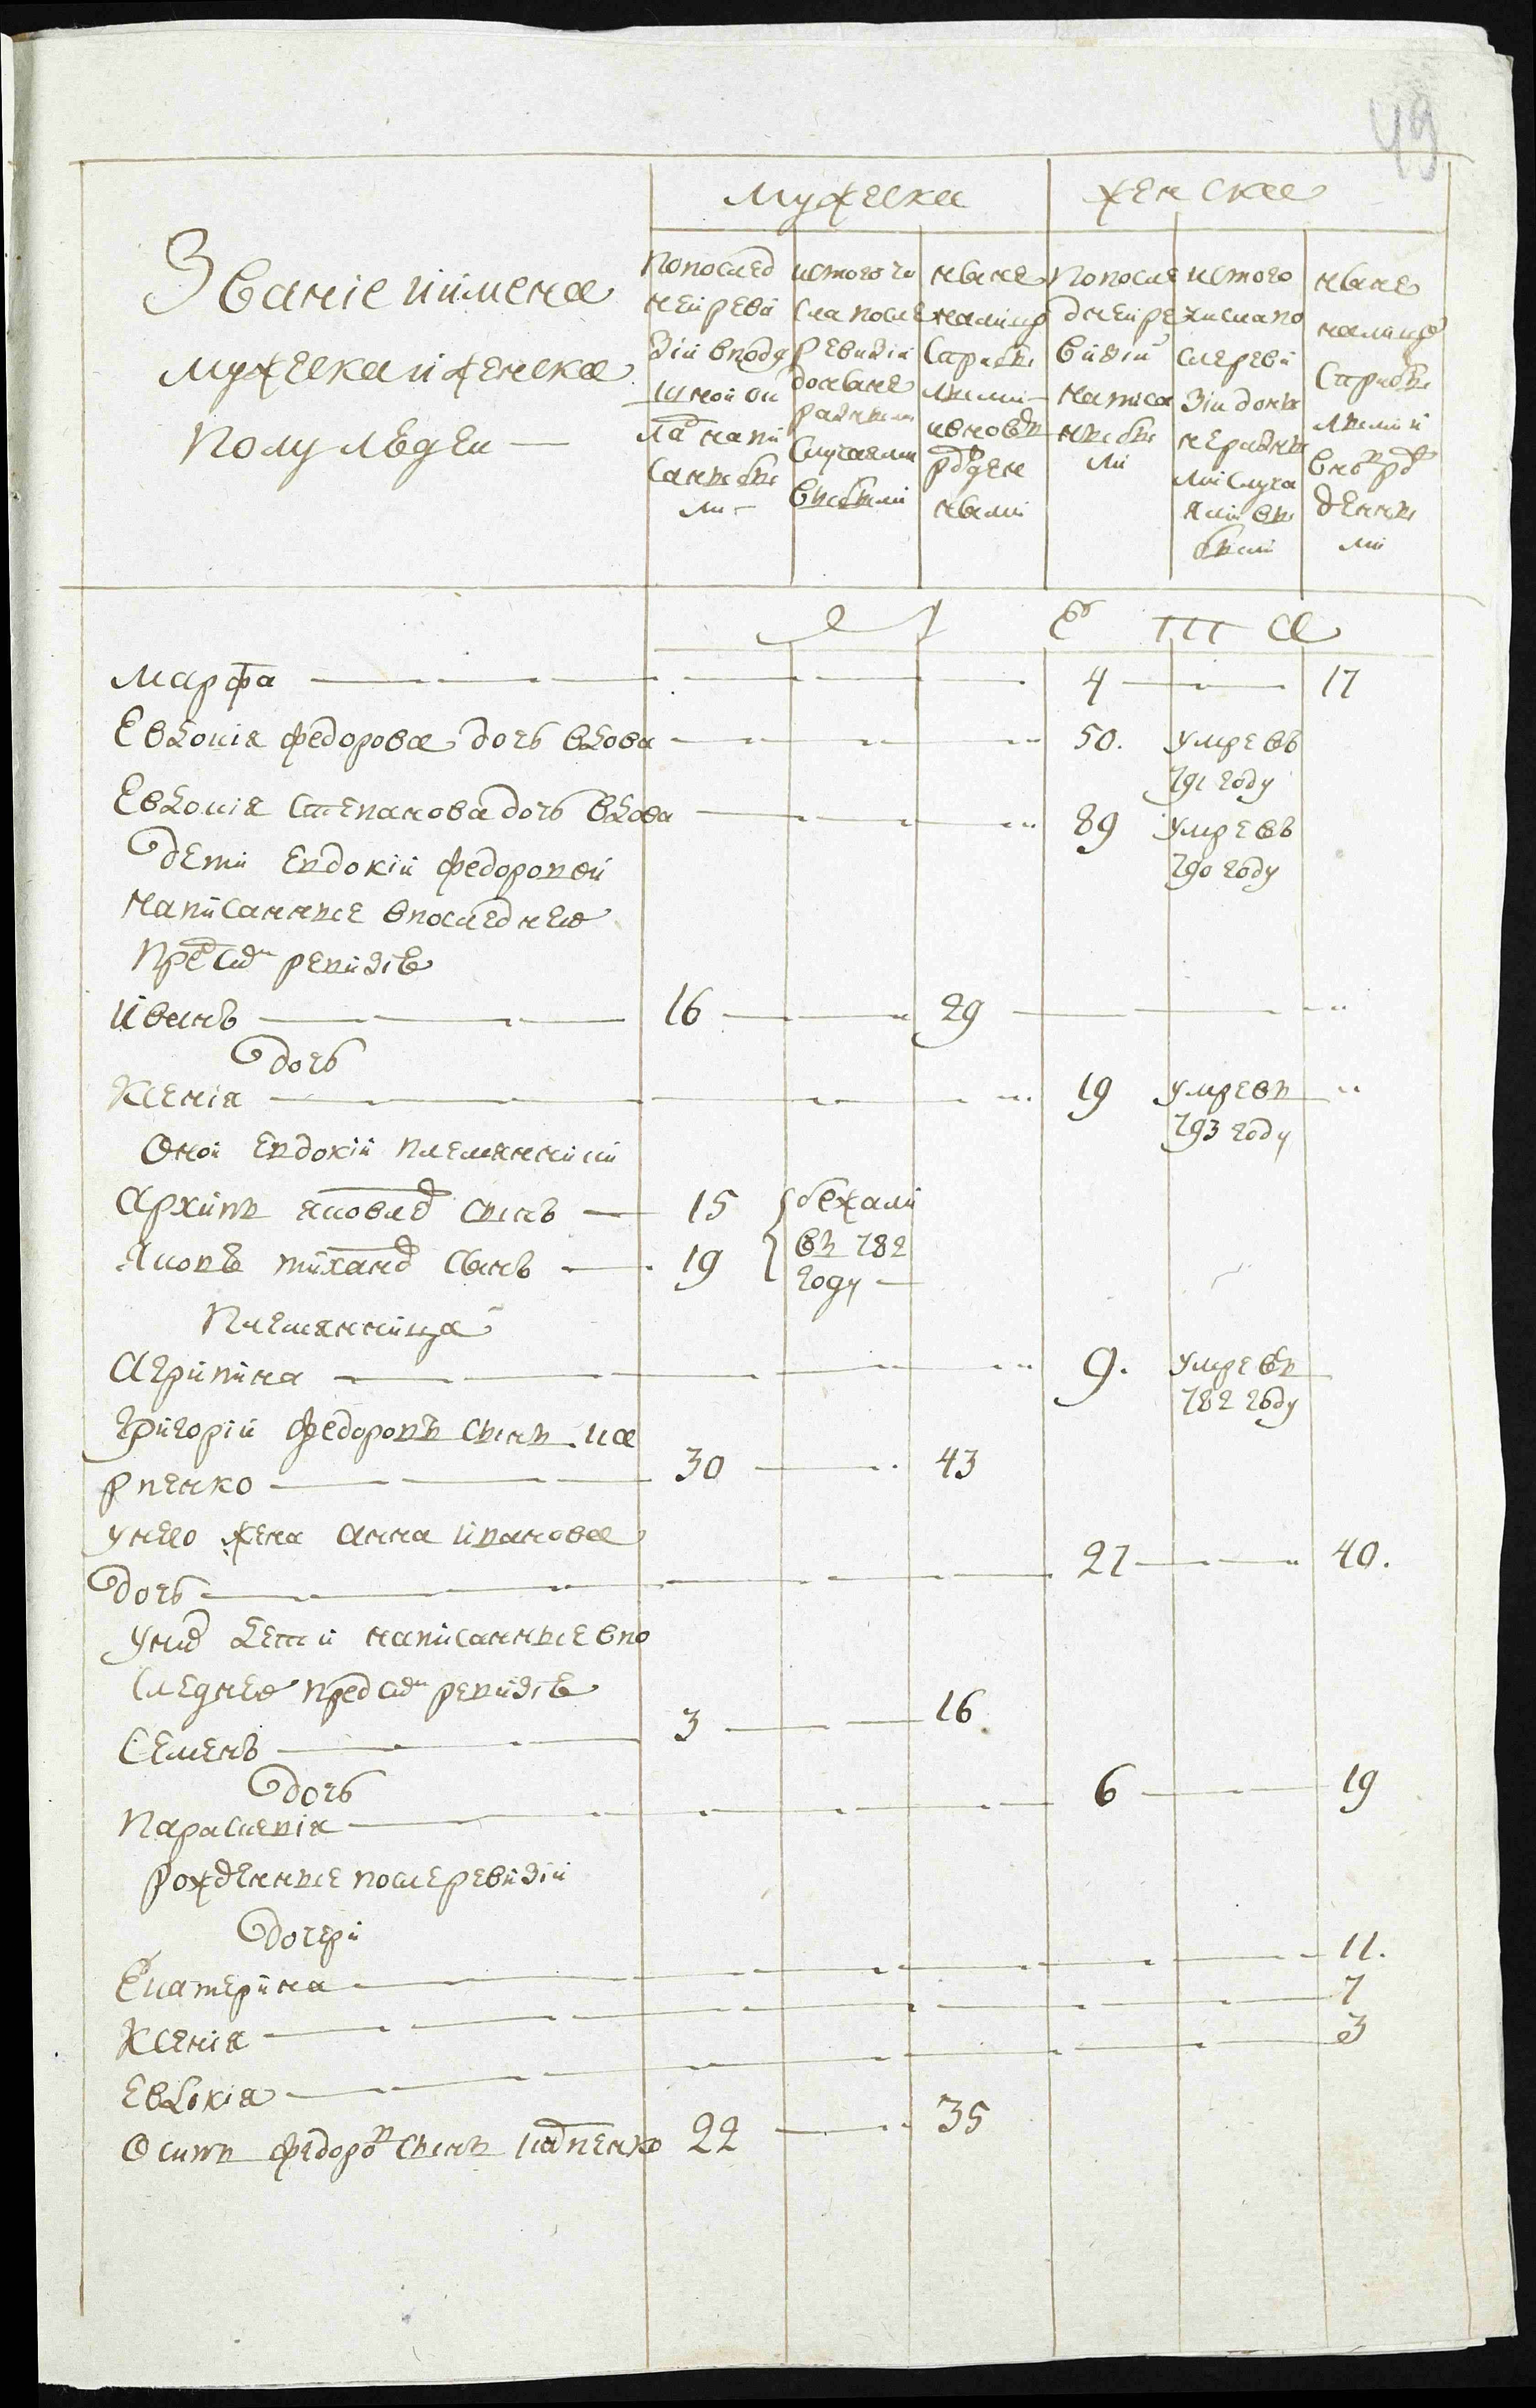 49
мужеска
женска
Званіе иимена
мужеска иженска
полу людеи —
Попослед
ней реви
зіи вподу
шной ок
ладъ напи
саныхъ бы
ло —
истого чи
сла после
ревизіи
доныне
разными
случаями
выбыли
ныне
налицо
Сприбы
лыми
ивновь
рожден
ными
Попосле
дней ре
визіи
написа
ныхъ бы
ло
истого
числапо
слереви
зіи доны
не разны
ми случа
ями вы
были
ныне
налицо
Сприбы
лыми и
вновь рож
денны
ми
лета
Марфа — 4 — 17
Евдокія федорова дочь вдова — 50. умре въ
791 году
Евдокія степанова дочь вдова — 89 умре въ
790 году
дети евдокіи федоровои
написанные впоследнею
пред сим ревизіею
иванъ — 16 — 29 —
дочь
Ксенія — 19 умре въ
793 году
Оной евдокіи племянники
Архипъ яковлев сынъ — 15 бежали
Яковъ тиханов сынъ — 19 въ 782
году —
Племянница
Агрипина — 9. умре въ
782 году
григорій федоровъ сынъ ка
рпенко — 30 — 43
унего жена анна иванова
дочь — 27 — 40.
уних дети написанные впо
следнею пред сим ревизіею
Семенъ — 3 — 16
дочь
Параскевія — 6 — 19
рожденные послеревизіи
дочери
Екатерина — 11.
Ксенія — 7
Евдокія — 3
Осипъ федоров сынъ карпенко 22 — 35